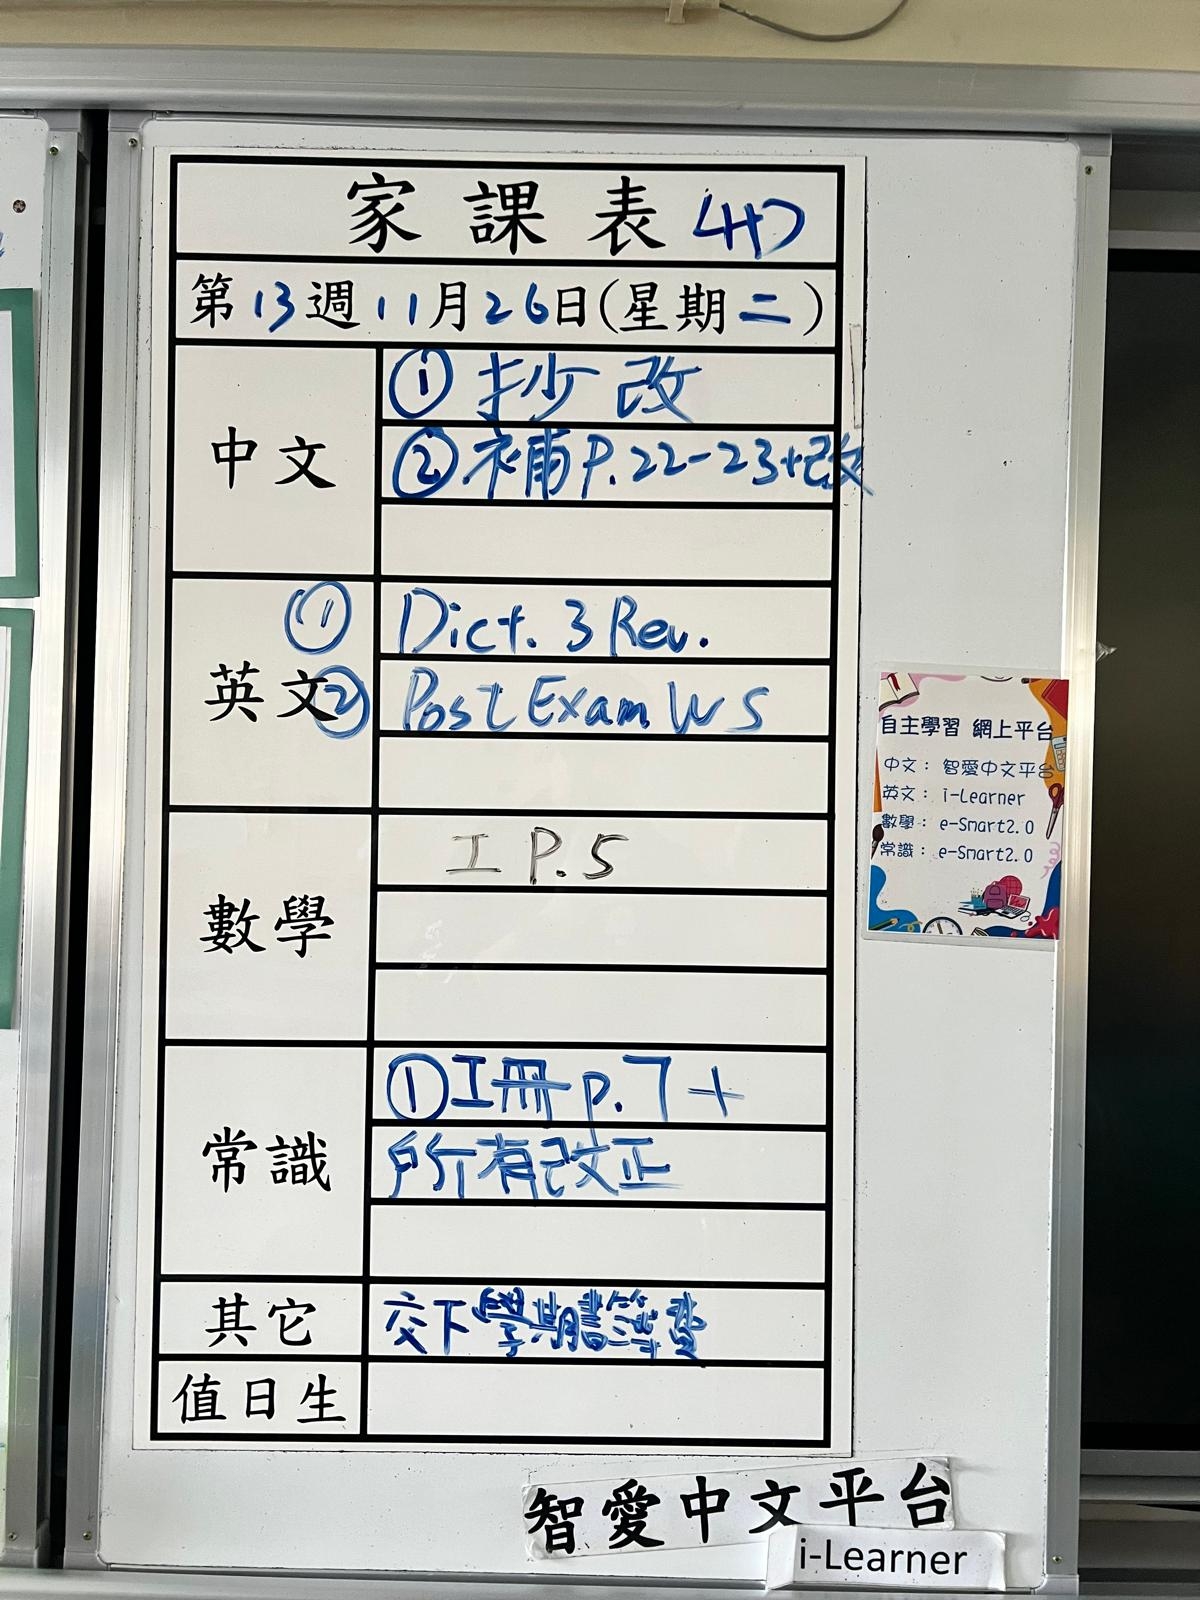 家課表 4H
第13週11月26日(星期二)
中文
① 抄改
② 補P.22-23+改
英文
① Dict. 3 Rev.
② Post Exam WS
數學
工 P.5
常識
①工冊 p.7+
所有改正
其它
交下學期書簿費
值日生
自主學習 網上平台
中文： 智愛中文平台
英文： i-Learner
數學： e-Smart2.0
常識： e-Smart2.0
智愛中文平台
i-Learner